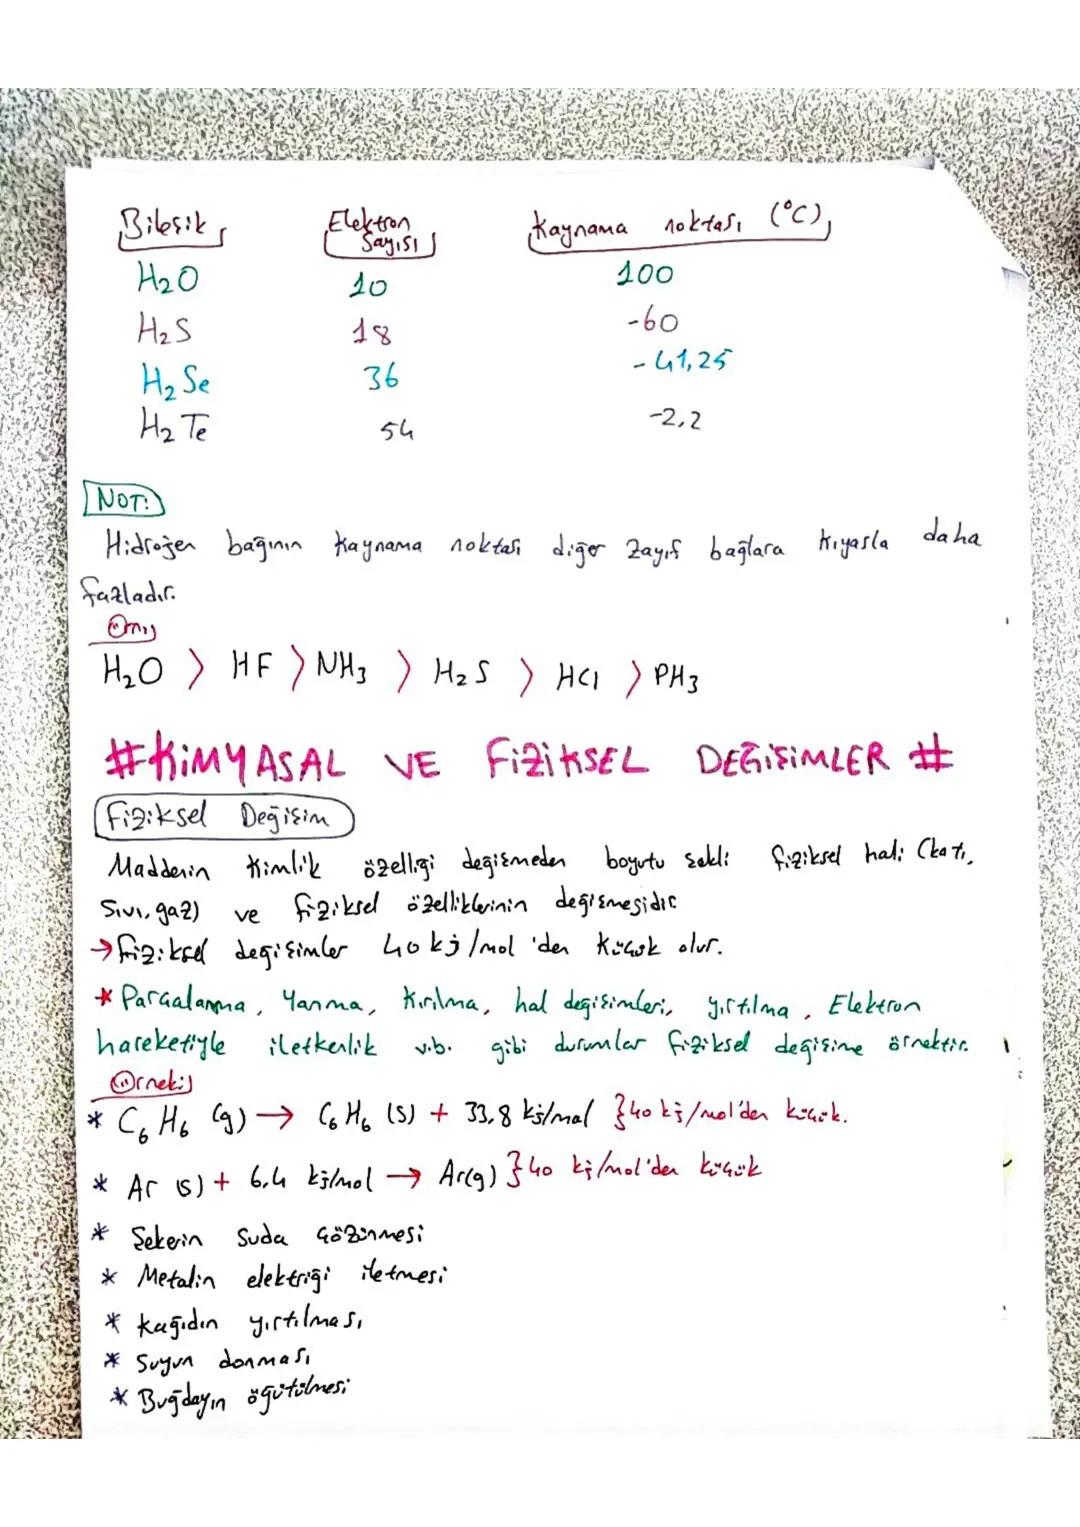 Bileşik Elektron Sayısı Kaynama noktası (°C)
H₂O 10 100
H₂S 18 -60
H₂Se 36 -41,25
H₂Te 54 -2,2
NOT:
Hidrojen bağının kaynama noktası diğer zayıf bağlara kıyasla daha
fazladır.
Örn;
H₂O > HF > NH₃ > H₂S > HCl > PH₃
#KİMYASAL VE FİZİKSEL DEĞİŞİMLER #
Fiziksel Değişim
Maddenin kimlik özelliği değişmeden boyutu şekli fiziksel hali (katı,
sıvı, gaz) ve fiziksel özelliklerinin değişmesidir
→ fiziksel değişimler 40 kj/mol 'den küçük olur.
* Parçalanma, Yanma, kırılma, hal değişimleri, yırtılma, Elektron
hareketiyle iletkenlik v.b. gibi durumlar fiziksel değişime örnektir.
Örnek;
* C₆H₆ (g) → C₆H₆ (s) + 33,8 kj/mol } 40 kj/mol'den küçük.
* Ar (s) + 6,4 kj/mol → Ar(g) } 40 kj/mol'den küçük
* Şekerin suda çözünmesi
* Metalin elektriği iletmesi
* kağıdın yırtılması
* Suyun donması
* Buğdayın öğütülmesi